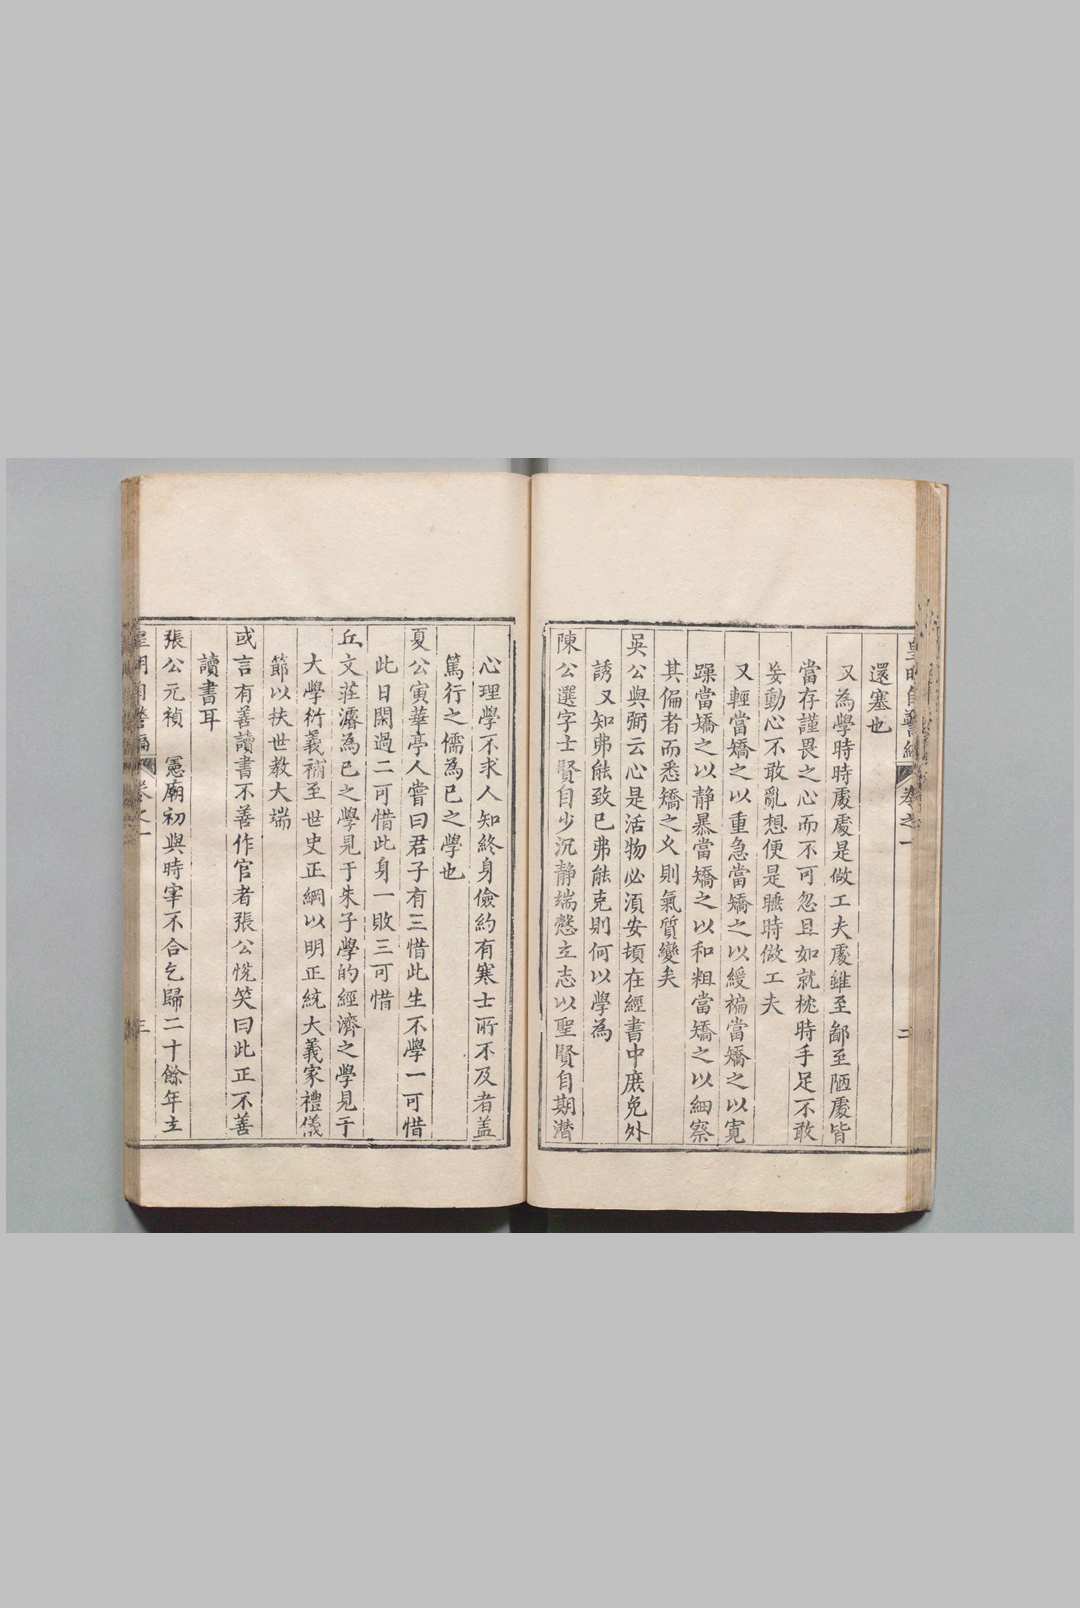 還塞也
又為學時時處處是做工夫處雖至鄙至陋處皆
當存謹畏之心而不可忽且如就枕時手足不敢
妄動心不敢亂想便是睡時做工夫
又輕當矯之以重急當矯之以緩褊當矯之以寬
躁當矯之以静暴當矯之以和粗當矯之以細察
其偏者而悉矯之乆則氣質變矣
吳公與弼云心是活物必湏安頓在經書中庶免外
誘又知弗能致已弗能克則何以學為
陳公選字士賢自少沉静端慤立志以聖賢自期潜
心理學不求人知終身儉約有寒士所不及者盖
篤行之儒為已之學也
夏公寅華亭人嘗曰君子有三惜此生不學一可惜
此日閑過二可惜此身一敗三可惜
丘文莊濬為已之學見于朱子學的經濟之學見于
大學衍義補至世史正綱以明正統大義家禮儀
節以扶世教大端
或言有善讀書不善作官者張公悅笑曰此正不善
讀書耳
張公元禎 憲廟初與時宰不合乞歸二十餘年主